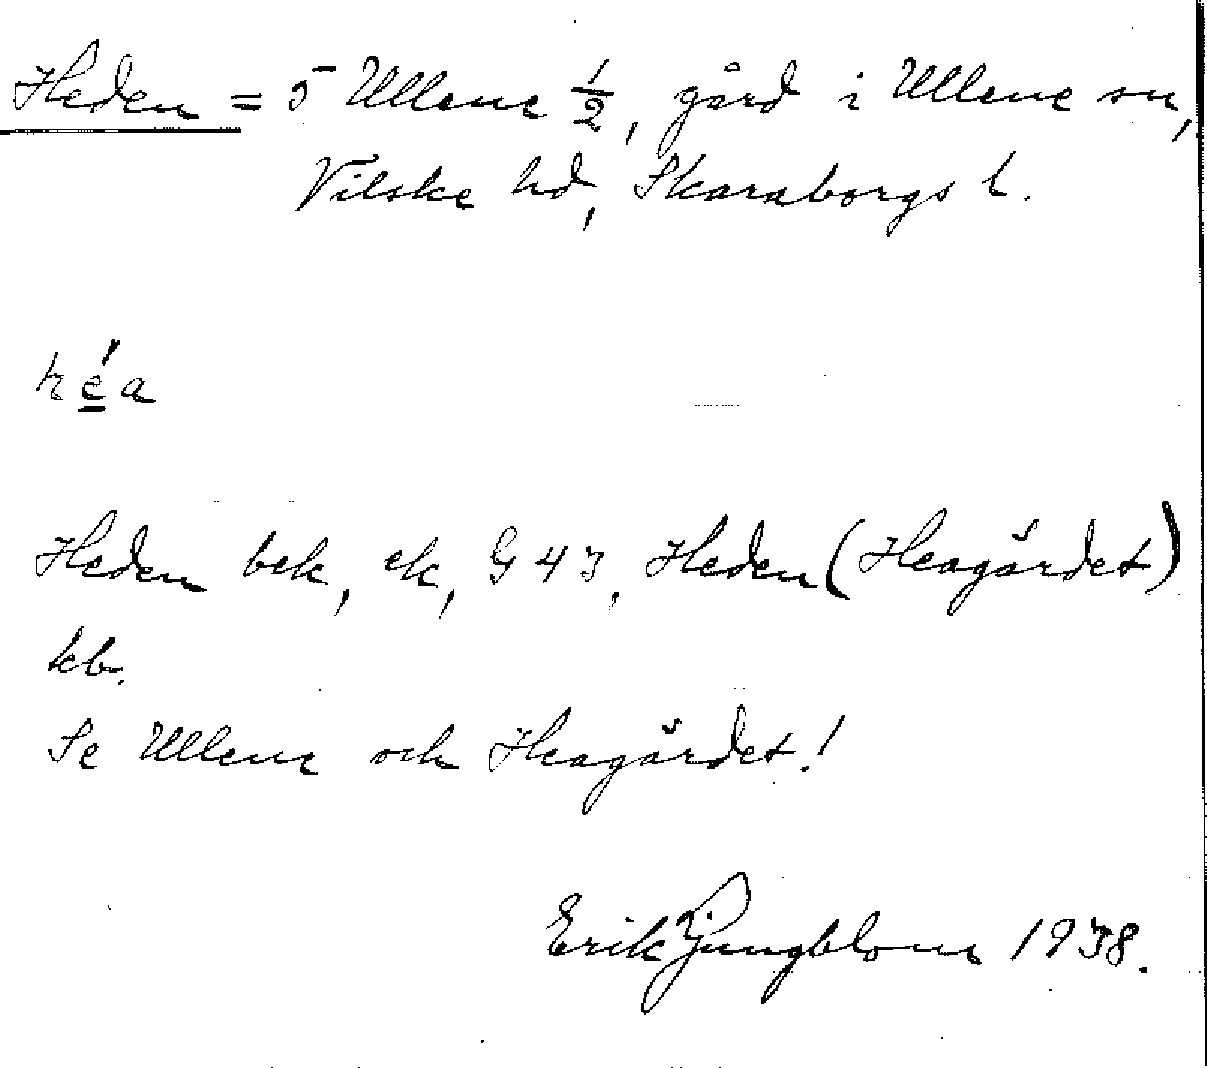 Heden = 5 Ullene 1/2, gård i Ullene sn,
Vilske hd, Skaraborgs l.
héa
Heden bek, ek, G 43, Heden (Heagärdet)
kb.
Se Ullene och Heagärdet!
Erik Ljungblom 1938.